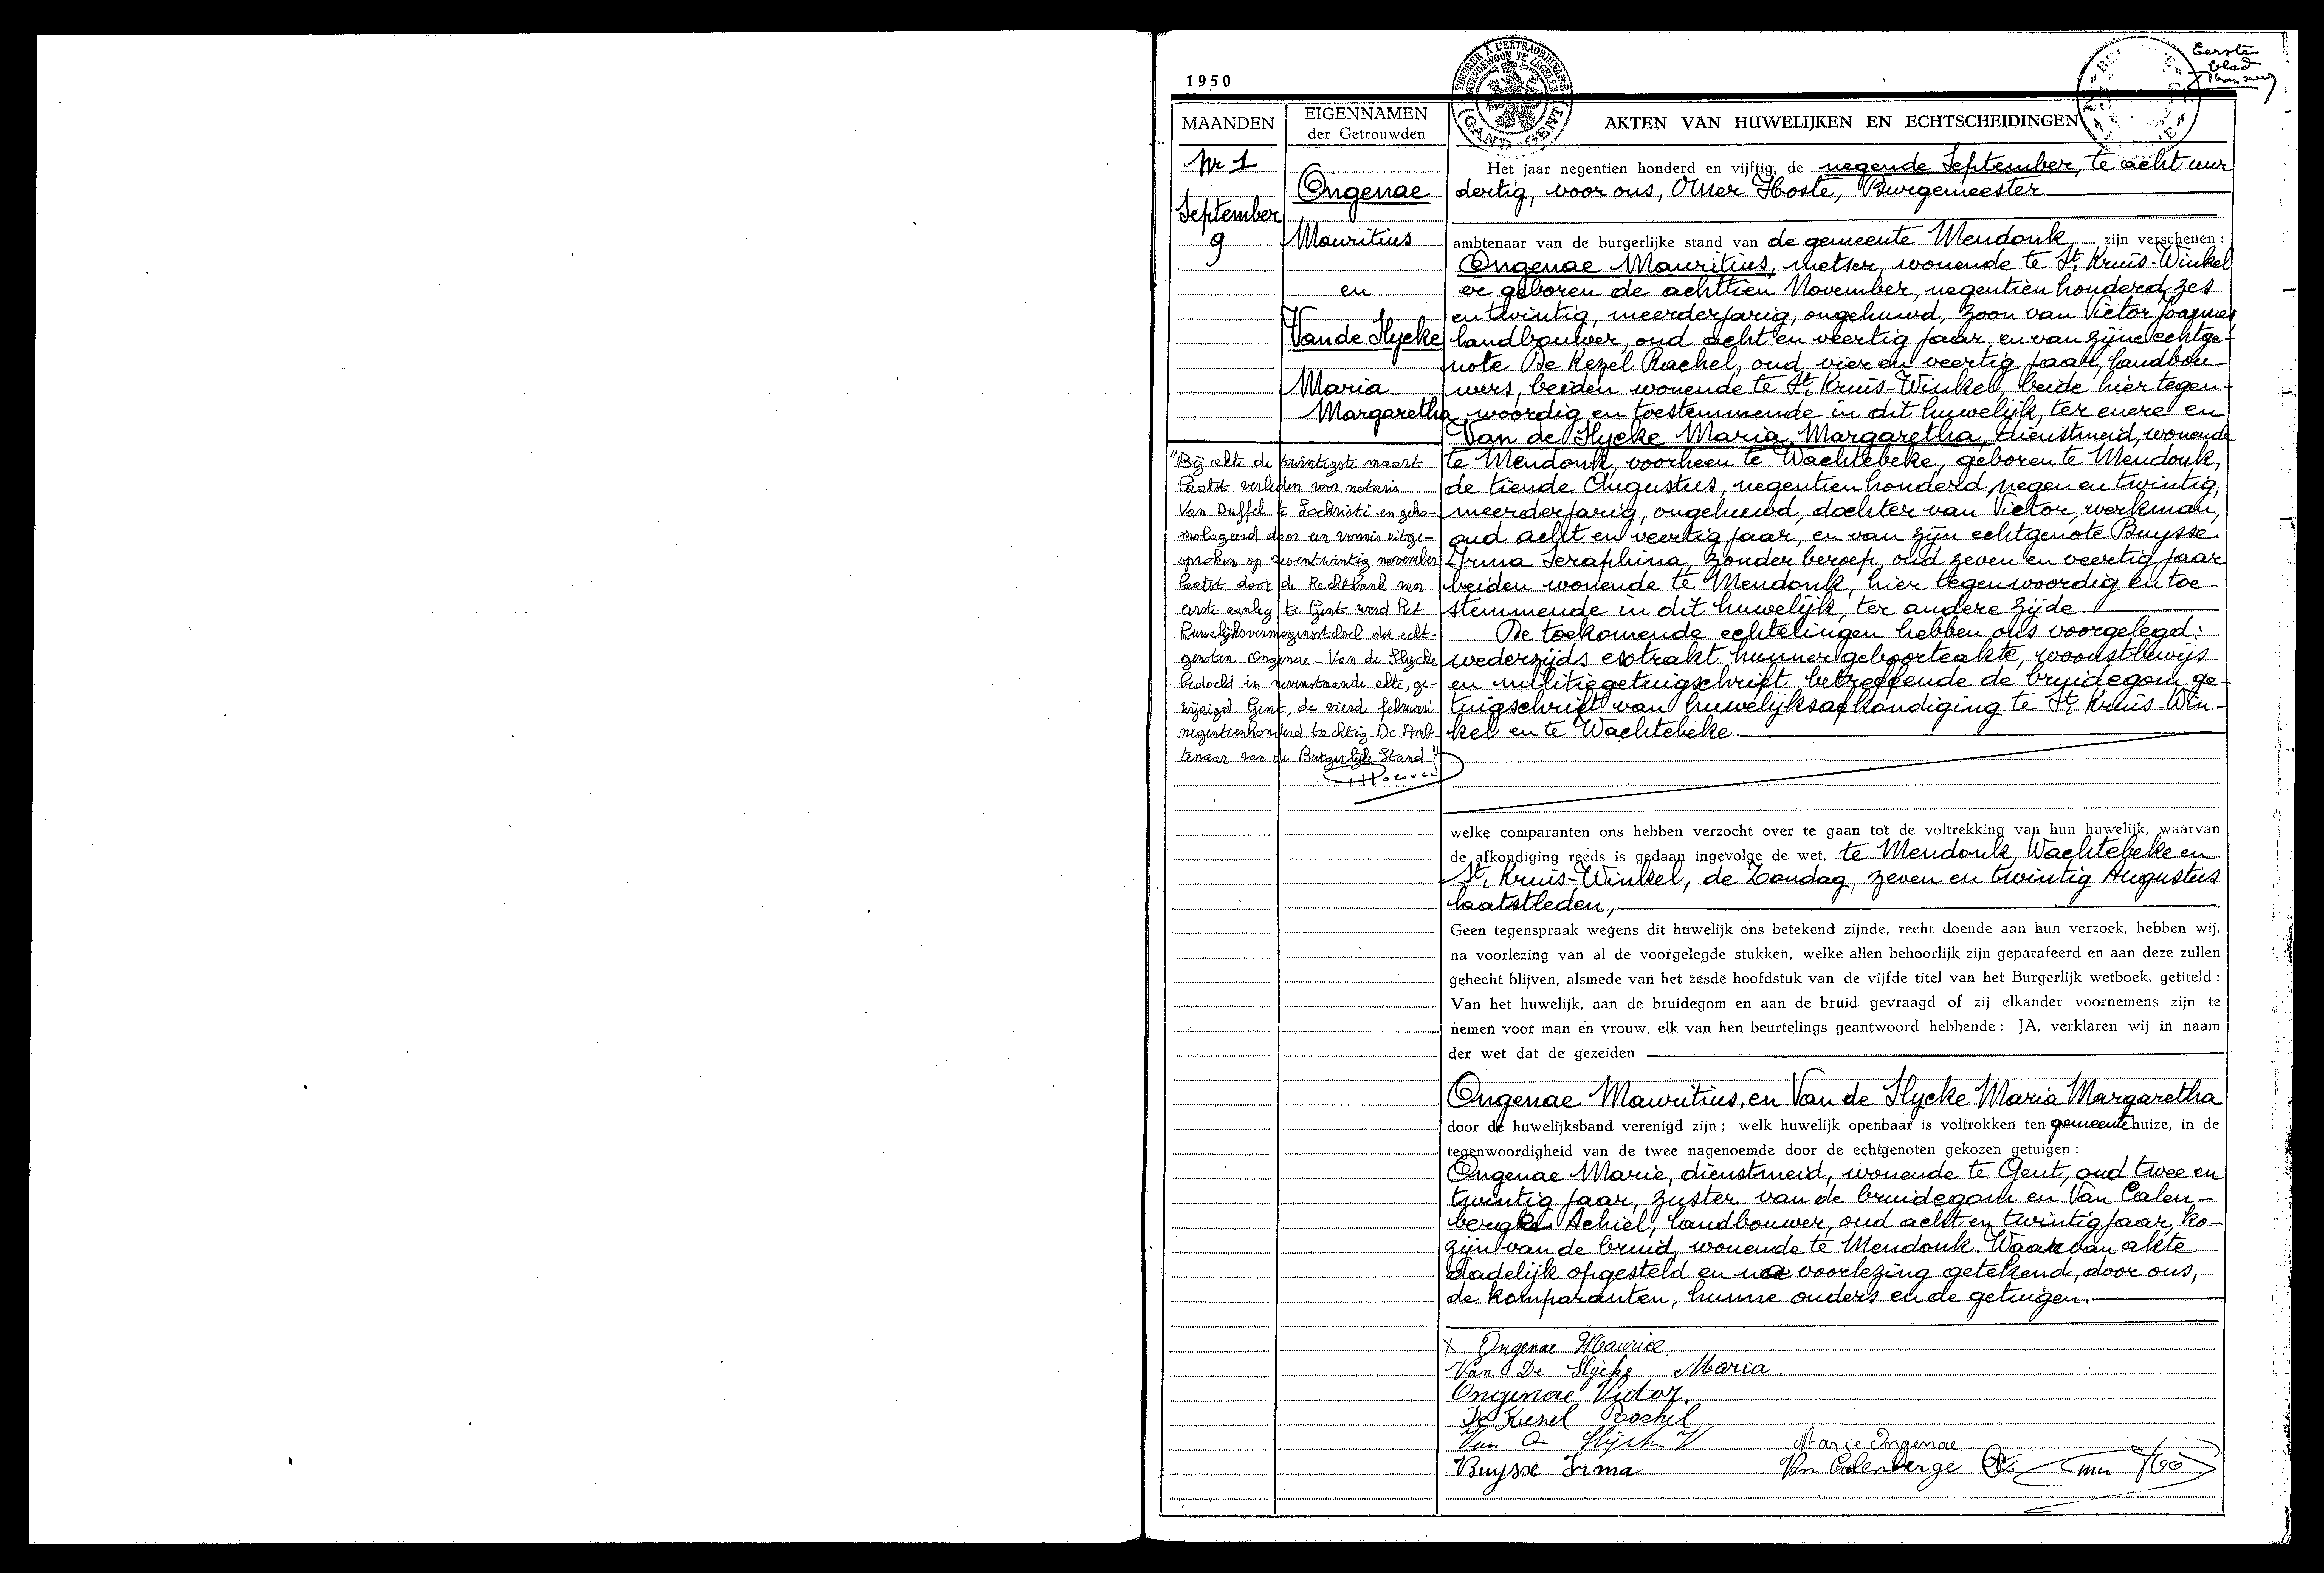 1950
TIMBRER À L'EXTRAORDINAIRE
GAND - GENT
Eerste
blad
MAANDEN
EIGENNAMEN
der Getrouwden
AKTEN VAN HUWELIJKEN EN ECHTSCHEIDINGEN
Nr 1
September
9
Ongenae
Mauritius
en
Van de Slycke
Maria
Margaretha
"Bij akte de twintigste maart
laatst verleden voor notaris
Van Duffel te Lochristi en geho-
mologeerd door een vonnis uitge-
sproken op zesentwintig november
laatst door de Rechtbank van
eerste aanleg te Gent werd het
huwelijksvermogensstelsel der echt-
genoten Ongenae - Van de Slycke
bedoeld in nevenstaande akte, ge-
wijzigd. Gent, de vierde februari
negentienhonderd tachtig De Amb-
tenaar van de Burgerlijke Stand"
Het jaar negentien honderd en vijftig, de negende September, te acht uur
dertig, voor ons, Omer Hoste, Burgemeester
ambtenaar van de burgerlijke stand van de gemeente Mendonk zijn verschenen :
Ongenae Mauritius, metser, wonende te St. Kruis-Winkel
er geboren de achttien November, negentien honderd zes
en twintig, meerderjarig, ongehuwd, zoon van Victor Joannes
landbouwer, oud acht en veertig jaar, en van zijne echtge-
note De Kezel Rachel, oud vier en veertig jaar, landbou-
wers, beiden wonende te St. Kruis-Winkel, beide hier tegen-
woordig en toestemmende in dit huwelijk, ter enere en
Van de Slycke Maria Margaretha, dienstmeid, wonende
te Mendonk, voorheen te Wachtebeke, geboren te Mendonk,
de tiende Augustus, negentien honderd negen en twintig,
meerderjarig, ongehuwd, dochter van Victor, werkman,
oud acht en veertig jaar, en van zijn echtgenote Buysse
Irma Seraphina, zonder beroep, oud zeven en veertig jaar
beiden wonende te Mendonk, hier tegenwoordig en toe-
stemmende in dit huwelijk, ter andere zijde.
De toekomende echtelingen hebben ons voorgelegd:
wederzijds extrakt hunner geboorteakte, woonstbewijs
en militiegetuigschrift betreffende de bruidegom, ge-
tuigschrift van huwelijksafkondiging te St. Kruis-Win-
kel en te Wachtebeke.
welke comparanten ons hebben verzocht over te gaan tot de voltrekking van hun huwelijk, waarvan
de afkondiging reeds is gedaan ingevolge de wet, te Mendonk, Wachtebeke en
St. Kruis-Winkel, de Zondag, zeven en twintig Augustus
laatstleden,
Geen tegenspraak wegens dit huwelijk ons betekend zijnde, recht doende aan hun verzoek, hebben wij,
na voorlezing van al de voorgelegde stukken, welke allen behoorlijk zijn geparafeerd en aan deze zullen
gehecht blijven, alsmede van het zesde hoofdstuk van de vijfde titel van het Burgerlijk wetboek, getiteld :
Van het huwelijk, aan de bruidegom en aan de bruid gevraagd of zij elkander voornemens zijn te
nemen voor man en vrouw, elk van hen beurtelings geantwoord hebbende : JA, verklaren wij in naam
der wet dat de gezeiden
Ongenae Mauritius, en Van de Slycke Maria Margaretha
door de huwelijksband verenigd zijn ; welk huwelijk openbaar is voltrokken ten gemeentehuize, in de
tegenwoordigheid van de twee nagenoemde door de echtgenoten gekozen getuigen :
Ongenae Marie, dienstmeid, wonende te Gent, oud twee en
twintig jaar, zuster van de bruidegom en Van Calen-
berge Achiel, landbouwer, oud acht en twintig jaar, ko-
zijn van de bruid, wonende te Mendonk. Waarvan akte
dadelijk opgesteld en na voorlezing getekend, door ons,
de komparanten, hunne ouders en de getuigen.
x Ongenae Maurice
Van De Slycke Maria.
Ongenae Victor.
De Kezel Rachel
Van De Slycke V
Marie Ongenae
Buysse Irma
Van Calenberge